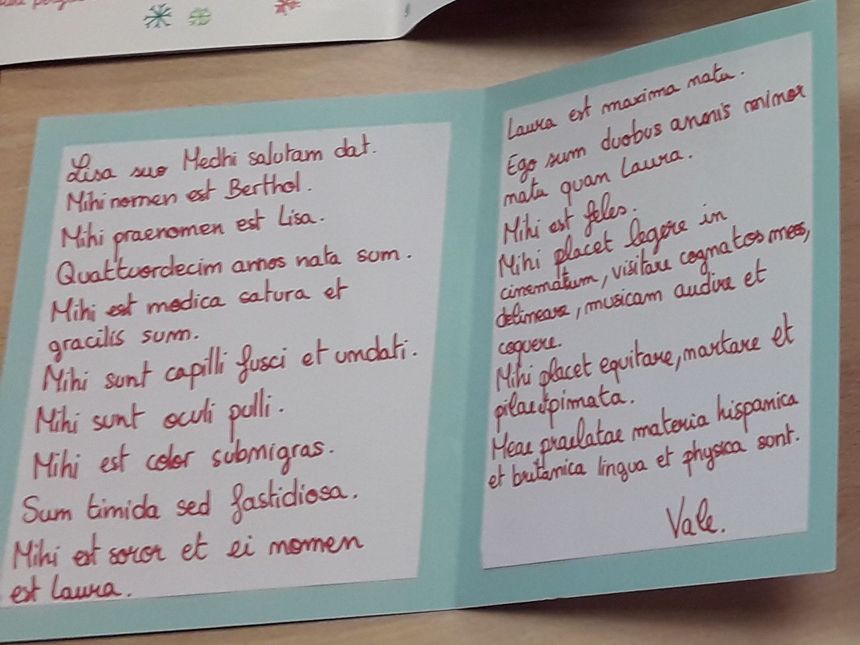 Lisa suo Medhi salutam dat.
Mihi nomen est Berthol.
Mihi praenomen est Lisa.
Quattuordecim annos nata sum.
Mihi est modica satura et
gracilis sum.
Mihi sunt capilli fusci et undati.
Mihi sunt oculi pulli.
Mihi est color submigras.
Sum timida sed fastidiosa.
Mihi est soror et ei nomen
est Laura.
Laura est maxima natu.
Ego sum duobus annis minor
natu quam Laura.
Mihi est feles.
Mihi placet legere in
cinematum, visitare cognatos meos,
delineare, musicam audire et
coquere.
Mihi placet equitare, nartare et
Meae praelatae materia hispanica
et britanica lingua et physica sont.
Vale.